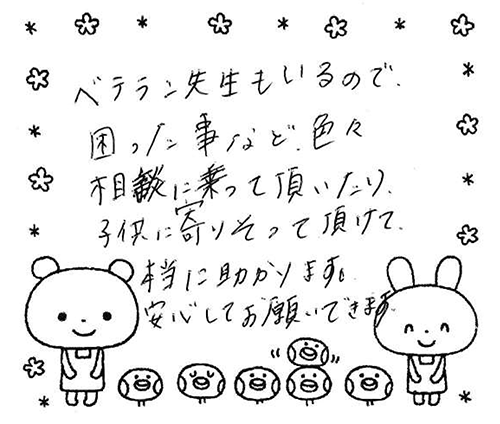 ベテラン先生もいるので、
困った事など、色々
相談に乗って頂いたり、
子供に寄りそって頂けて
本当に助かります。
安心してお願いできます。